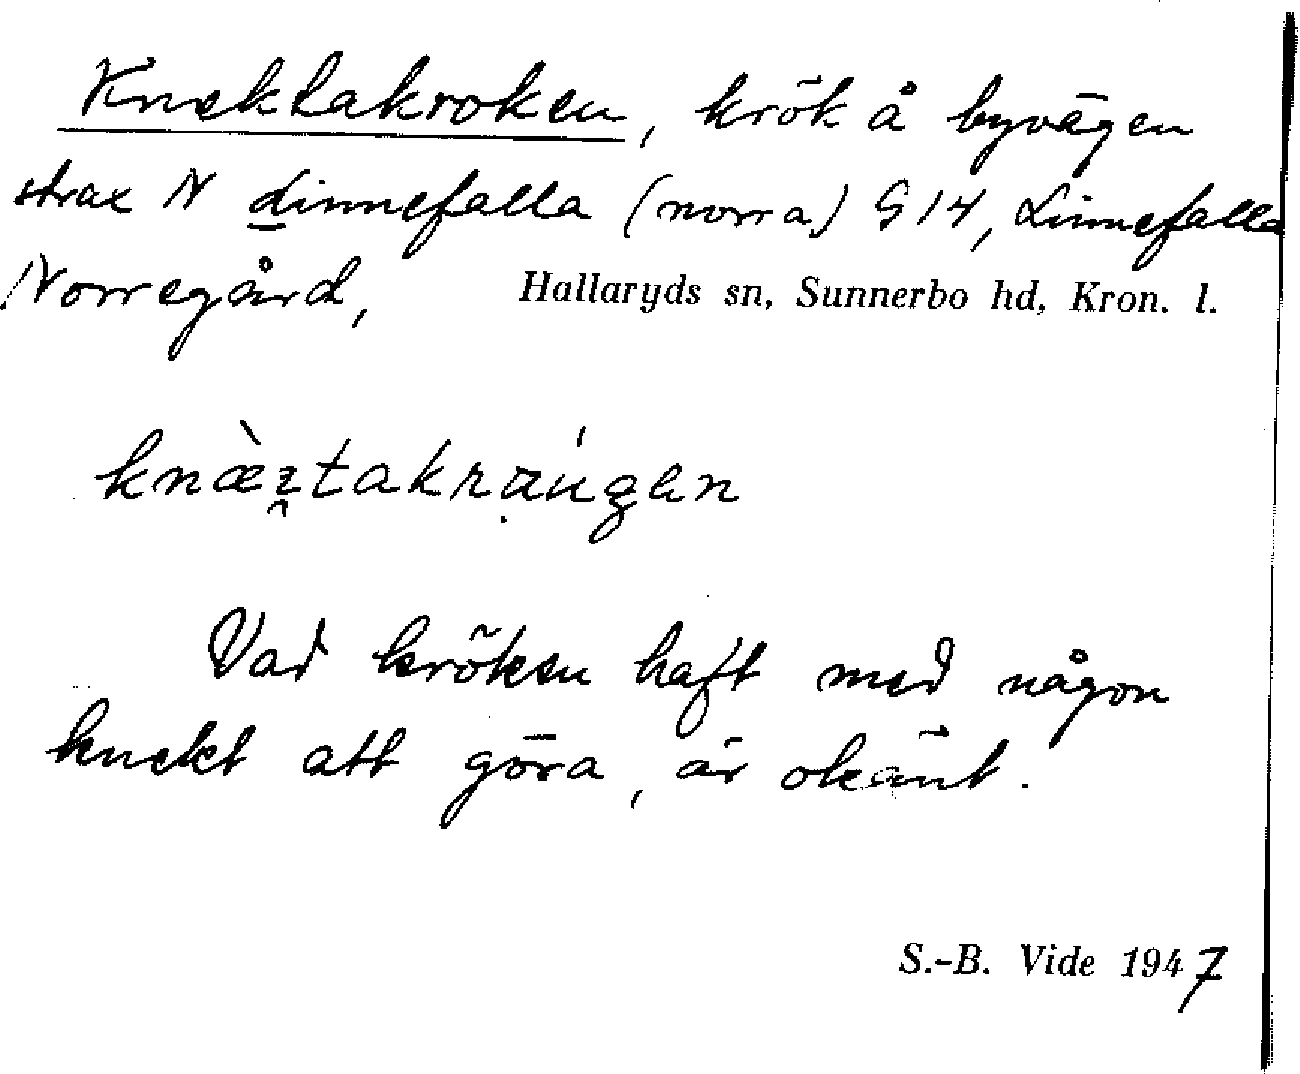 Knektakroken, krök å byvägen
strax N Linnefalla (norra) G14, Linnefalla
Norregård, Hallaryds sn, Sunnerbo hd, Kron. l.
Vad kröken haft med någon
knekt att göra, är okänt.
S.-B. Vide 1947